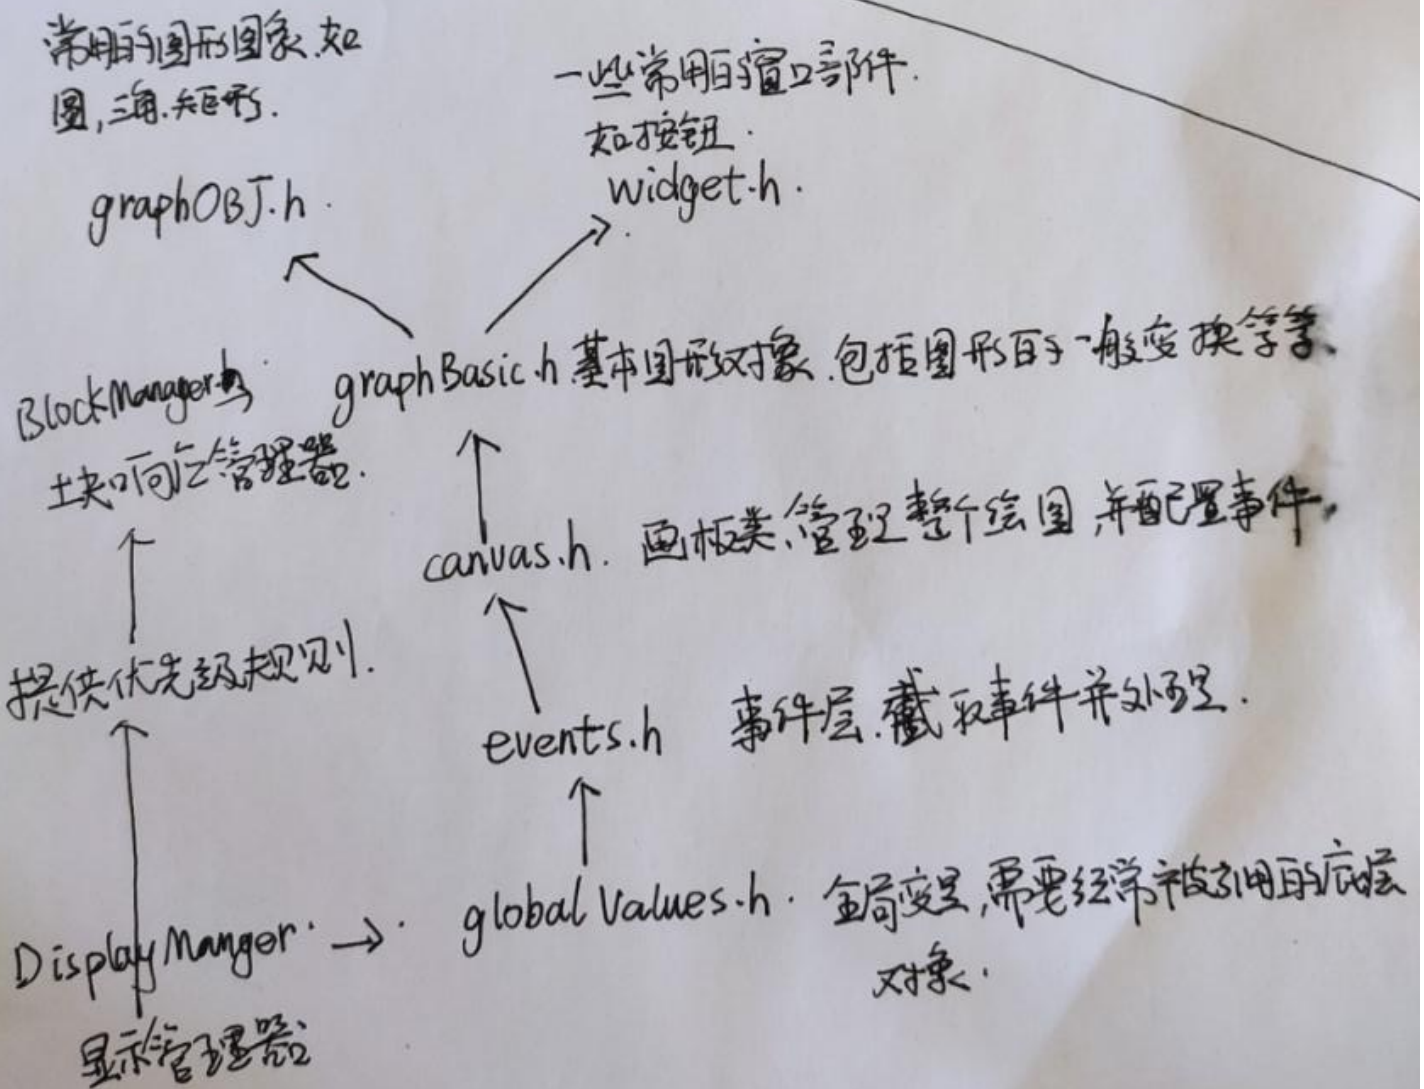 常用的图形图象.如
圆,三角.矩形.
graphOBJ.h.
一些常用的窗口部件.
如按钮.
widget.h.
BlockManager.h
块响应管理器.
graphBasic.h 基本图形对象.包括图形的一般变换等等、
canvas.h. 画板类、管理整个绘图,并配置事件.
提供优先级规则.
events.h 事件层.截取事件并处理.
DisplayManger. → globalValues.h. 全局变量,需要经常被引用的底层
对象.
显示管理器